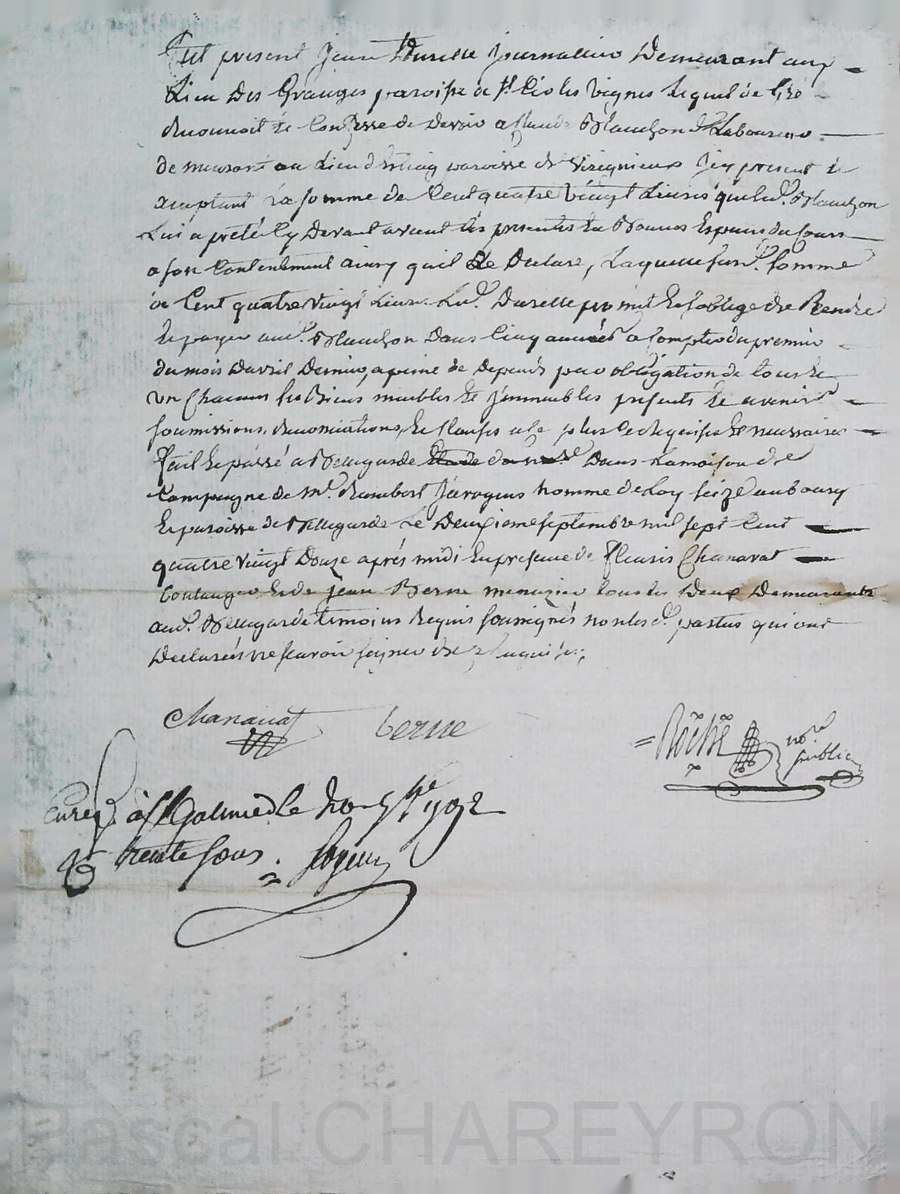 Fut présent Jean Durelle Journalier Demeurant aux
Lieu Des Granges paroisse de St. Cir les vignes Lequel de Gré
Reconnoit et Confesse de Devoir a Claude Blanchon Laboureur
demeurant au Lieu paroisse de Virignieux Icy présent et
acceptant La somme de Cent quatre vingt Livres que Led. Blanchon
Lui a prété Cy Devant avant Les présentes En Bonnes Espèces du Cours
a son Contentement ainsy qu'il Le Déclare, Laquelle susd. somme
de Cent quatre vingt Livres Led. Durelle promet et s'oblige de Rendre
et payer aud. Blanchon Dans Cinq années a Compter du premier
du mois Davril Dernier, a peine de Dépends par obligation de tous et
un Chacuns ses Biens meubles et Immeubles présents et avenirs
soumissions, Renonciations, et Clauses a ce plus Requises et nécessaires
Fait et passé a Bellegarde Dans La maison de
Campagne de Mr. Rambert Jacques homme de Loy seize au bourg
et paroisse de Bellegarde Le Deuxieme septembre mil sept Cent
quatre vingt Douze après midi En présence de Fleuris Chanavat
Boulanger et de Jean Berne menusier tous Les Deux Demeurants
aud. Bellegarde temoins Requis soussignés non les d. parties qui ont
Déclarées ne scavoir signer de ce Enquises;
Chanavat Berne
Roche nore. public
Enreg à St Galmier Le 7bre 1792
R trente sous.
Pascal CHAREYRON